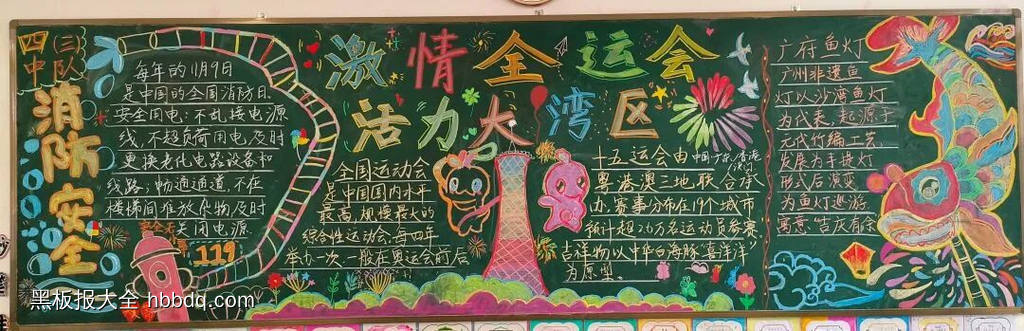 四(三)
中队
消防安全
每年的11月9日
是中国的全国消防日
安全用电:不乱接电源
线,不超负荷用电,及时
更换老化电路设备和
线路;畅通通道,不在
楼梯间堆放杂物,及时
关闭电源
119
激情全运会
活力大湾区
全国运动会
是中国国内水平
最高,规模最大的
综合性运动会,每四年
举办一次,一般在奥运会前后
十五运会由中国广东、香港
澳门
粤港澳三地,联合承
办,赛事分布在19个城市
预计超2.6万名运动员参赛
吉祥物以中华白海豚"喜洋洋"
为原型
广府鱼灯
广州非遗鱼
灯以沙湾鱼灯
为代表,起源于
元代竹编工艺,
发展为手提灯
形式后演变
为鱼灯巡游
寓意"吉庆有余
黑板报大全 hbbdq.com